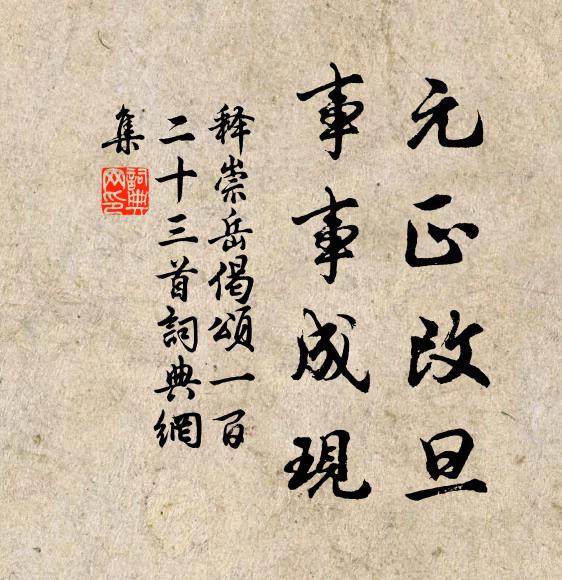 元正改旦
事事成現
释崇岳偈頌一百
二十三首詞典網
集
詞典
网印